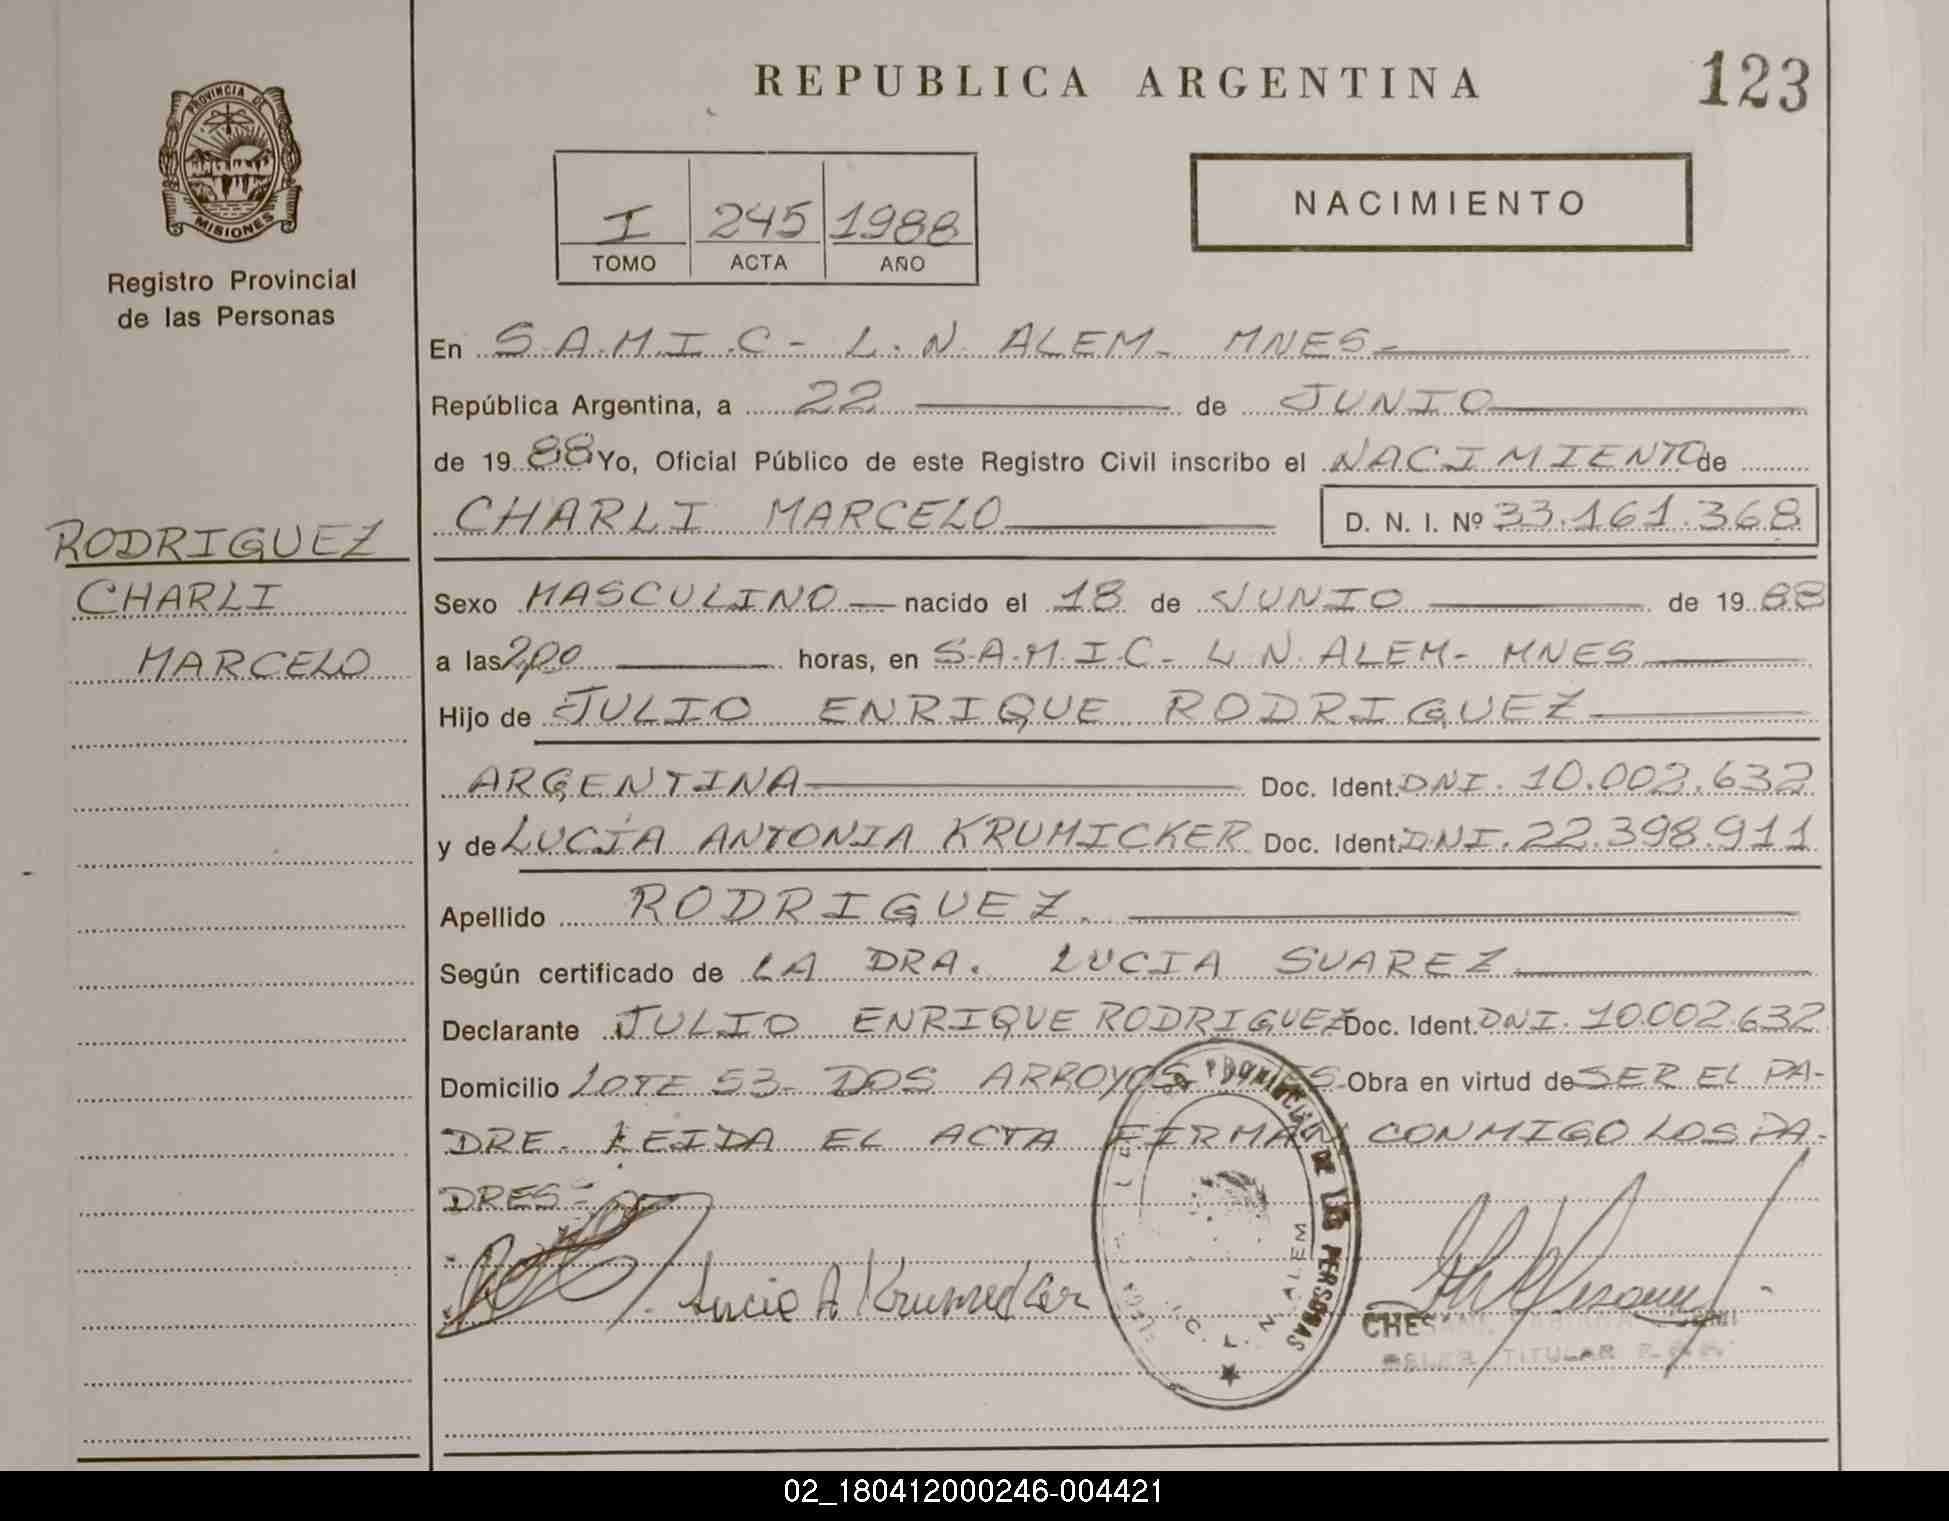 REPUBLICA ARGENTINA
123
PROVINCIA DE
MISIONES
Registro Provincial
de las Personas
I 245 1988
TOMO ACTA AÑO
NACIMIENTO
En S.A.M.I.C - L.N. ALEM - MNES -
República Argentina, a 22 de JUNIO
de 1988 Yo, Oficial Público de este Registro Civil inscribo el NACIMIENTO de
CHARLI MARCELO D. N. I. Nº 33.161.368
RODRIGUEZ
CHARLI
MARCELO
Sexo MASCULINO nacido el 18 de JUNIO de 1988
a las horas, en S.A.M.I.C - L.N. ALEM - MNES
Hijo de JULIO ENRIQUE RODRIGUEZ
ARGENTINA Doc. Ident. DNI. 10.002.632
y de LUCÍA ANTONIA KRUMICKER Doc. Ident. DNI. 22.398.911
Apellido RODRIGUEZ.
Según certificado de LA DRA. LUCIA SUAREZ
Declarante JULIO ENRIQUE RODRIGUEZ Doc. Ident. DNI. 10.002.632
Domicilio LOTE 53 - DOS ARROYOS Obra en virtud de SER EL PA-
DRE. LEIDA EL ACTA FIRMAN CONMIGO LOS PA-
DRES =
Lucia A Krumicker
DE LAS PERSONAS
L. N. ALEM
TITULAR
02_180412000246-004421